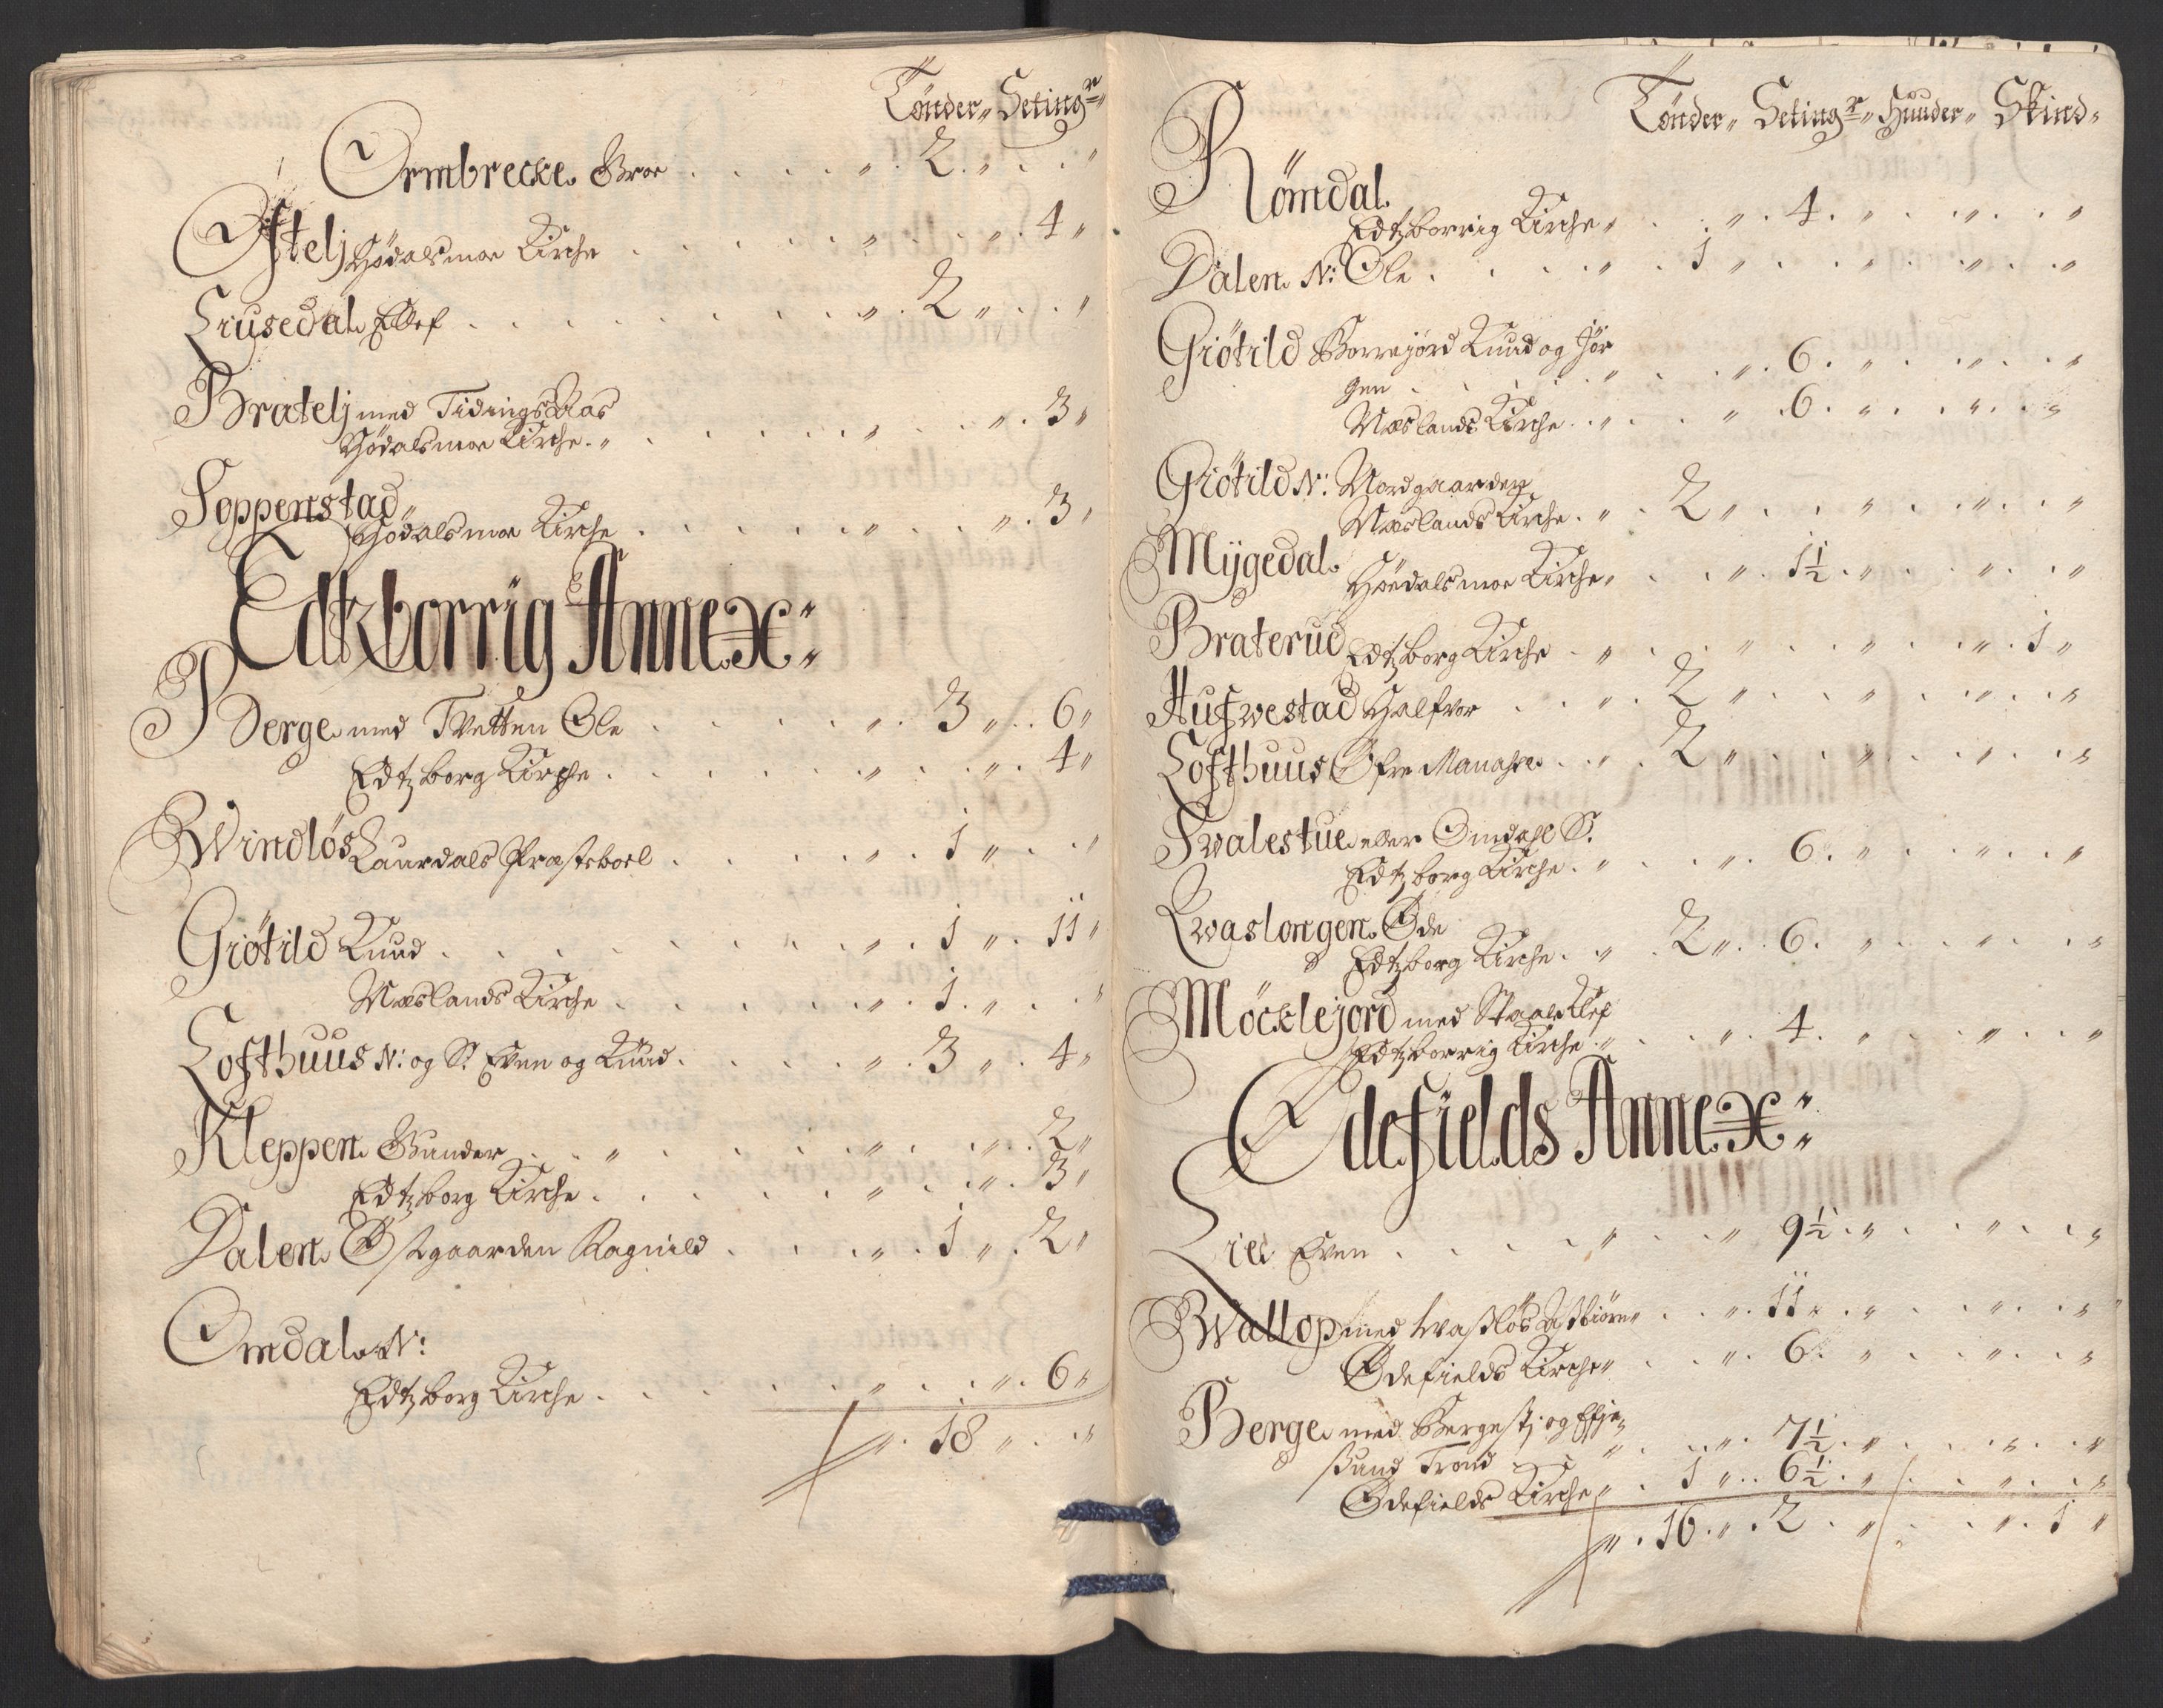 Tönder„ Seting.r„
Ormbrecke. Broe . . . . „ . 2 „ . . „
Oftelj
Hödalsmoe Kirche . . . . . „ . . „ . 4 „
Liusedal Ellef . . . . . . . . „ . 2 „ . . „
Bratelj med Tidings Aas
Hödalsmoe Kirche . „ . . . . . „ . . „ . 3 „
Soppenstad„
Hödalsmoe Kirche . . . . . „ . . „ . 3 „
Edtzborrig Annex:„
Berge. med Tvetten Ole . . . . „ . 3 „ . . 6 „
Edtzborg Kirche . . . . . „ . . „ . 4 „
Windlös Laurdals Præsteboel . . . . „ . 1 „ . . „
Giötild Knud . . . . . . . . „ . 1 „ . 11 „
Næslands Kirche . . . . . „ . 1 . „ . . „
Lofthuus N: og S. Even og Knud . . . . „ . 3 „ . 4 „
Kleppen. Gunder . . „ . . . . „ . . „ . 2 „
Edtzborg Kirche . . . . . „ . . „ . 3 „
Dalen. Østgaarden Ragnild . . . „ . 1 „ . 2 „
Omdal. N:
Edtzborg Kirche . . . . . „ . . „ . 6 „
„ . 18 „ . . „
Tönder„ Seting.r„ Huuder„ Skind„
Römdal.
Edtzborrig Kirche „ . . „ . 4 . „ . . „ . . „
Dalen. N: Ole . . . . „ . 1 „ . . „ . . „ . . „
Giötild Borrejord Knud og Jör
gen . . . . „ . . „ . 6 . „ . . „ . . „
Næslands Kirche . . „ . . „ . 6 . „ . . „ . . „
Giötild N: Nordgaarden
Næslands Kirche . „ . 2 „ . . „ . . „ . . „
Mÿgedal.
Höedalsmoe Kirche „ . . „ . 1½ . „ . . „ . . „
Braterud Edtzborg Kirche . „ . . „ . . „ . . „ . 1 „
Hufwestad Halfvor . . „ . 2 „ . . „ . . „ . . „
Lofthuus Øfre Manasse . . „ . 2 „ . . „ . . „ . . „
Swalestue. eller Omdahl S.
Edtzborg Kirche . „ . . „ . 6 . „ . . „ . . „
Qwaslongen. Øde
Edtzborg Kirche . „ . 2 „ . 6 . „ . . „ . . „
Möcklejord med
Edtzborrig Kirche . „ . . „ . 4 . „ . . „ . . „
Edefields Annex:„
Lie Even . . . . „ . . „ 9½ . „ . . „ . . „
Wallop med Asbiörn „ . . „ . 11 „ . „ . . „ . . „
Ødefields Kirche „ . . „ . 6 . „ . . „ . . „
Berge. med Bergestj og
Trond „ . . „ . 7½ . „ . . „ . . „
Ødefields Kirche „ . 1 „ . . 6½ . „ . . „ . . „
„ . 16 . „ . 2 . „ . . „ . 1 „